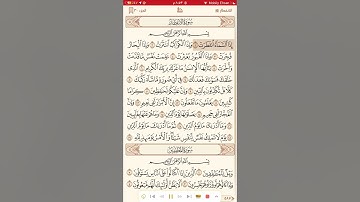 سُورَةُ الِانفِطَارِ
بِسْمِ اللَّهِ الرَّحْمَٰنِ الرَّحِيمِ
إِذَا السَّمَاءُ انفَطَرَتْ ١ وَإِذَا الْكَوَاكِبُ انتَثَرَتْ ٢ وَإِذَا الْبِحَارُ
فُجِّرَتْ ٣ وَإِذَا الْقُبُورُ بُعْثِرَتْ ٤ عَلِمَتْ نَفْسٌ مَّا قَدَّمَتْ
وَأَخَّرَتْ ٥ يَا أَيُّهَا الْإِنسَانُ مَا غَرَّكَ بِرَبِّكَ الْكَرِيمِ ٦ الَّذِي
خَلَقَكَ فَسَوَّاكَ فَعَدَلَكَ ٧ فِي أَيِّ صُورَةٍ مَّا شَاءَ رَكَّبَكَ ٨
كَلَّا بَلْ تُكَذِّبُونَ بِالدِّينِ ٩ وَإِنَّ عَلَيْكُمْ لَحَافِظِينَ ١٠ كِرَامًا
كَاتِبِينَ ١١ يَعْلَمُونَ مَا تَفْعَلُونَ ١٢ إِنَّ الْأَبْرَارَ لَفِي نَعِيمٍ ١٣
وَإِنَّ الْفُجَّارَ لَفِي جَحِيمٍ ١٤ يَصْلَوْنَهَا يَوْمَ الدِّينِ ١٥ وَمَا هُمْ عَنْهَا
بِغَائِبِينَ ١٦ وَمَا أَدْرَاكَ مَا يَوْمُ الدِّينِ ١٧ ثُمَّ مَا أَدْرَاكَ مَا يَوْمُ
الدِّينِ ١٨ يَوْمَ لَا تَمْلِكُ نَفْسٌ لِّنَفْسٍ شَيْئًا وَالْأَمْرُ يَوْمَئِذٍ لِّلَّهِ ١٩
سُورَةُ الْمُطَفِّفِينَ
بِسْمِ اللَّهِ الرَّحْمَٰنِ الرَّحِيمِ
وَيْلٌ لِّلْمُطَفِّفِينَ ١ الَّذِينَ إِذَا اكْتَالُوا عَلَى النَّاسِ يَسْتَوْفُونَ ٢
وَإِذَا كَالُوهُمْ أَو وَّزَنُوهُمْ يُخْسِرُونَ ٣ أَلَا يَظُنُّ أُولَٰئِكَ أَنَّهُم مَّبْعُوثُونَ ٤